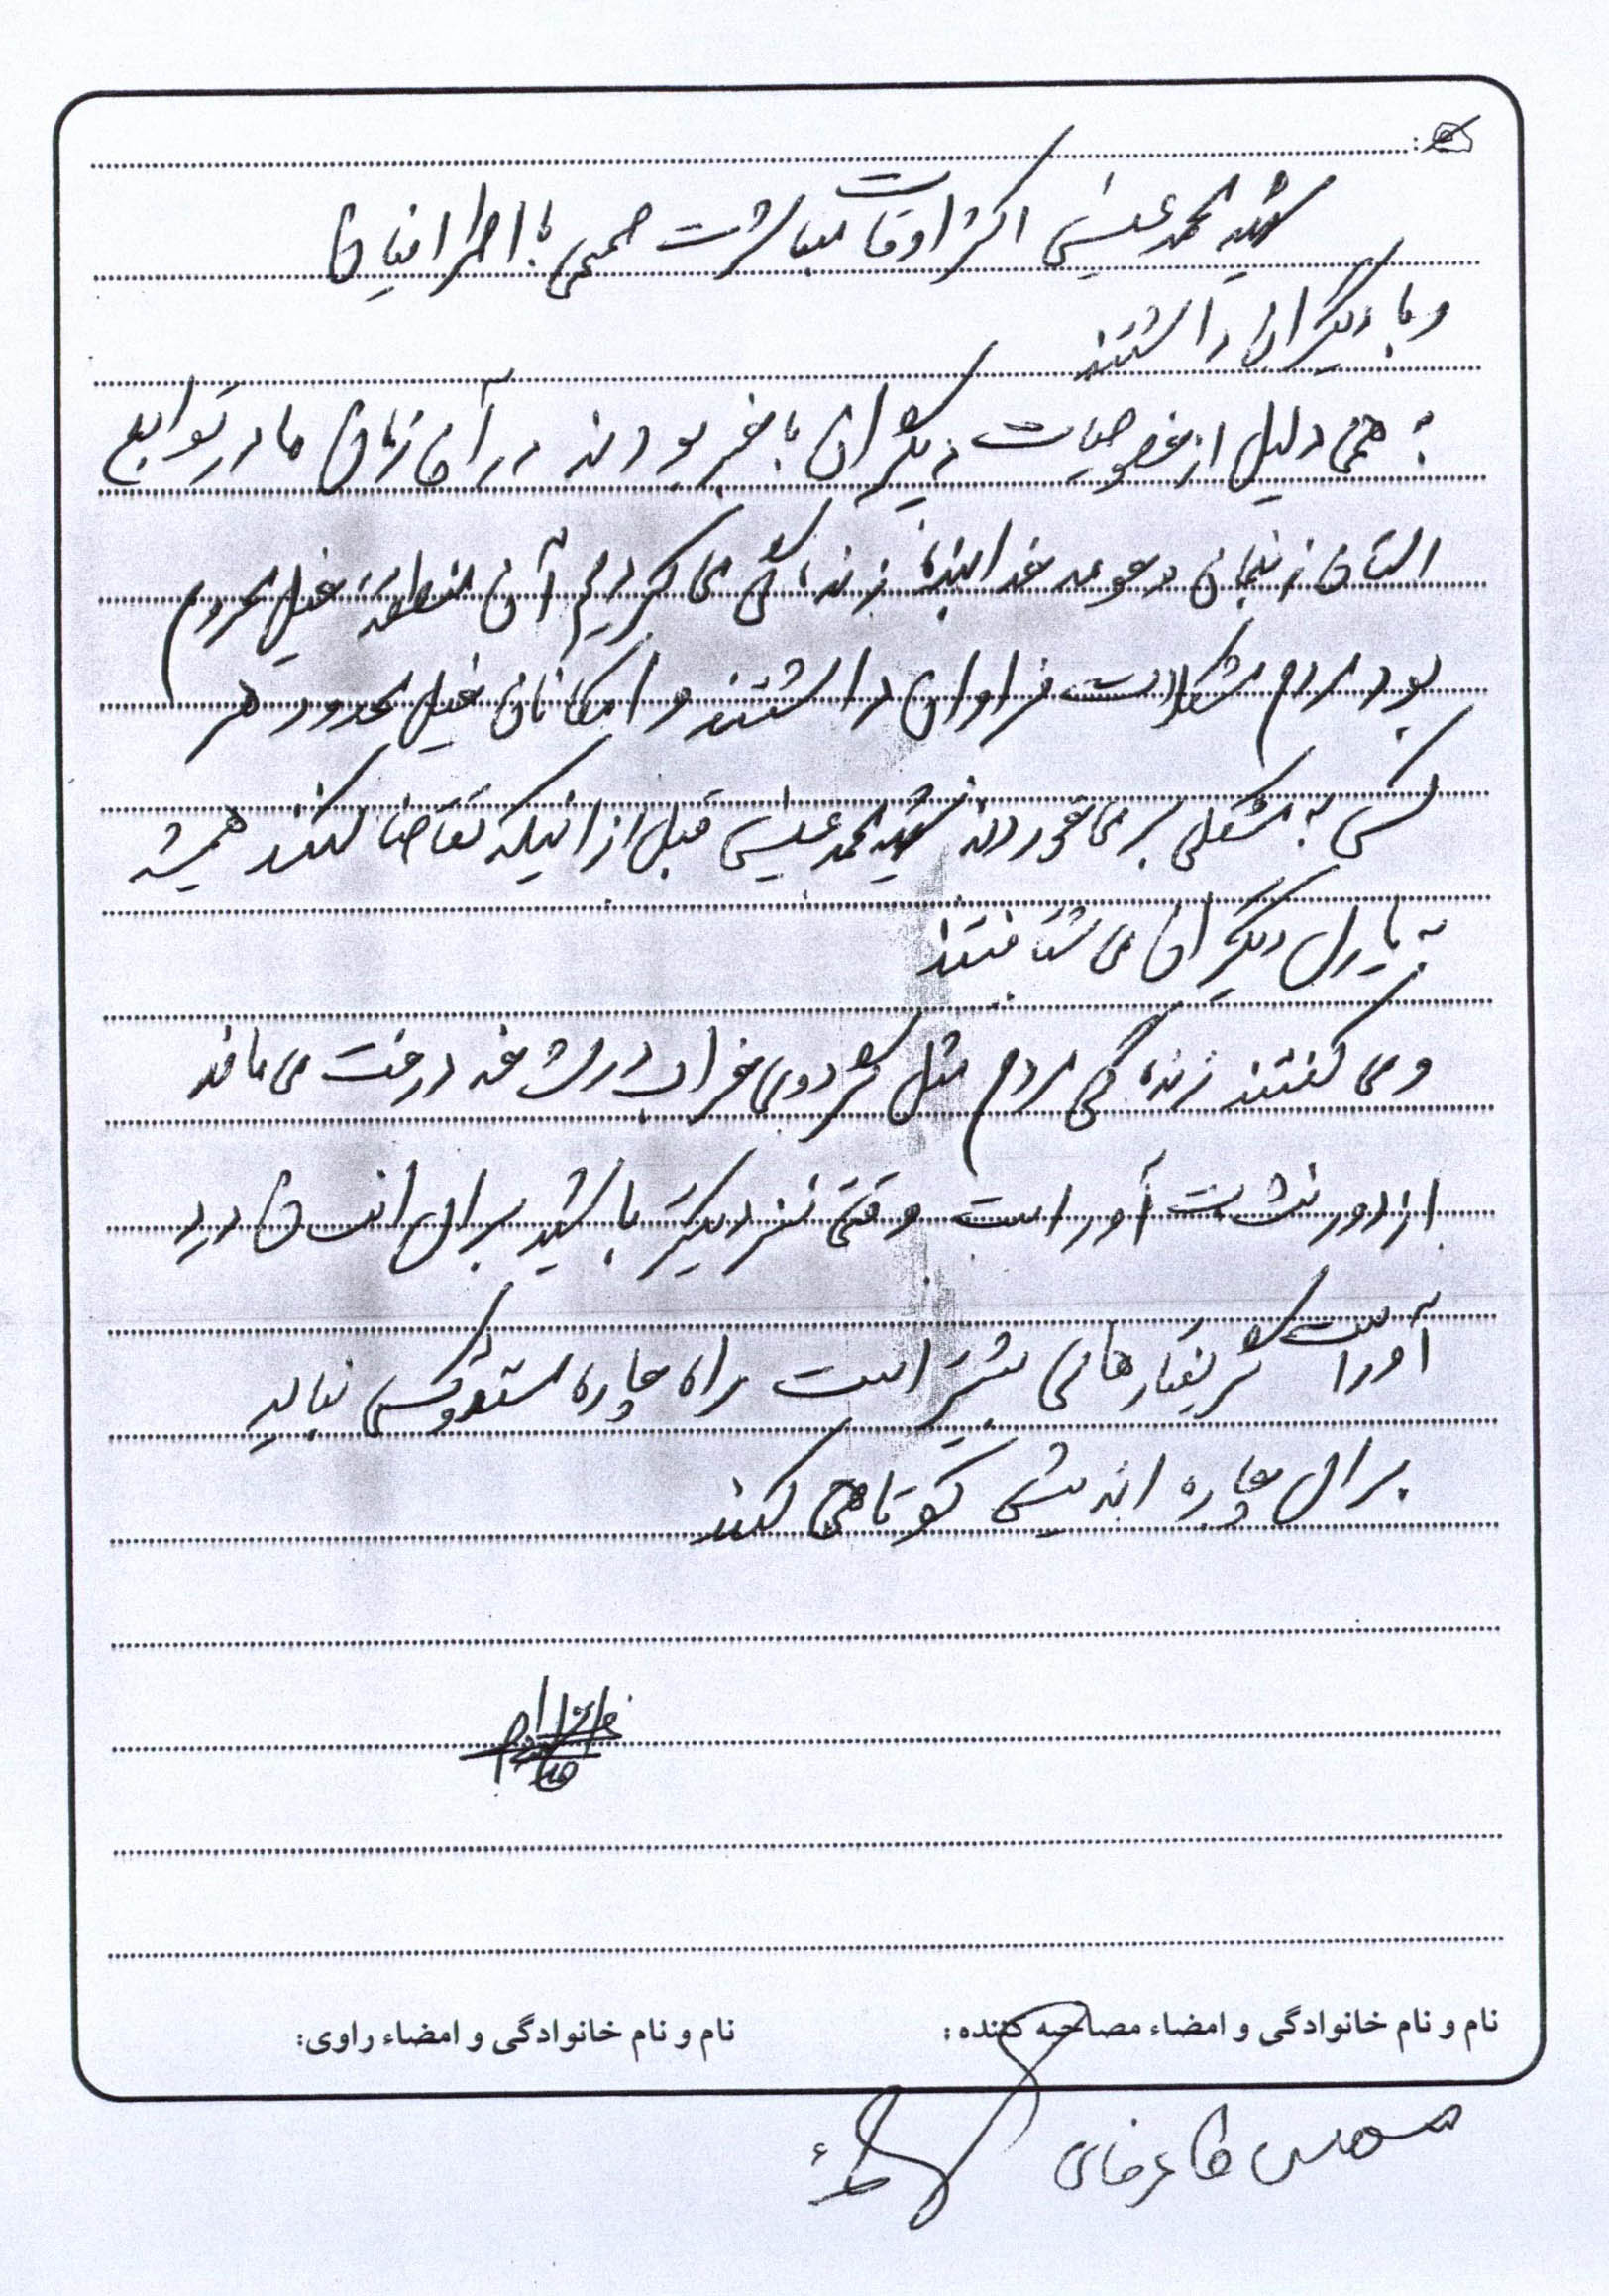 شهید محمد عیسی اکثر اوقات مباشرت صمیمی با اطرافیان
و با دیگران داشتند
به همی دلیل از خصوصیات دیگران با خبر بودند در آن زمان ما در توابع
استان زنجان حومه خدابنده زنده گی می کردیم آن منطقه خیلی محروم
بود مردم مشکلات فراوان داشتند و امکانات خیلی محدود هر
کسی به مشکلی بر می خوردند شهید محمد عیسی قبل از اینکه تقاضا کنند همیشه
به یاری دیگران می شتافتند
و می گفتند زنده گی مردم مثل گردوی خراب در شاخه درخت می ماند
از دور نشات آور است وقتی نزدیکتر باشید برای انسان درد
آور است گرفتارهای بیشتر است راه چاره کسی نباید
برای چاره اندیشی کوتاهی کند
نام و نام خانوادگی و امضاء مصاحبه کننده:
نام و نام خانوادگی و امضاء راوی: